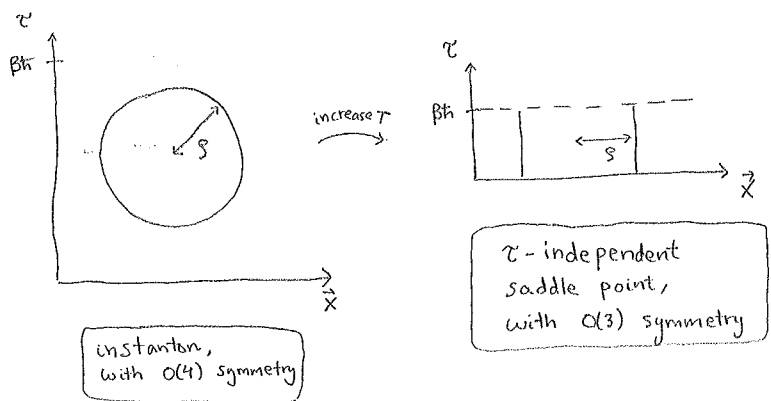 τ
βħ
ρ
x⃗
instanton,
with O(4) symmetry
increase T
τ
βħ
ρ
x⃗
τ-independent
saddle point,
with O(3) symmetry